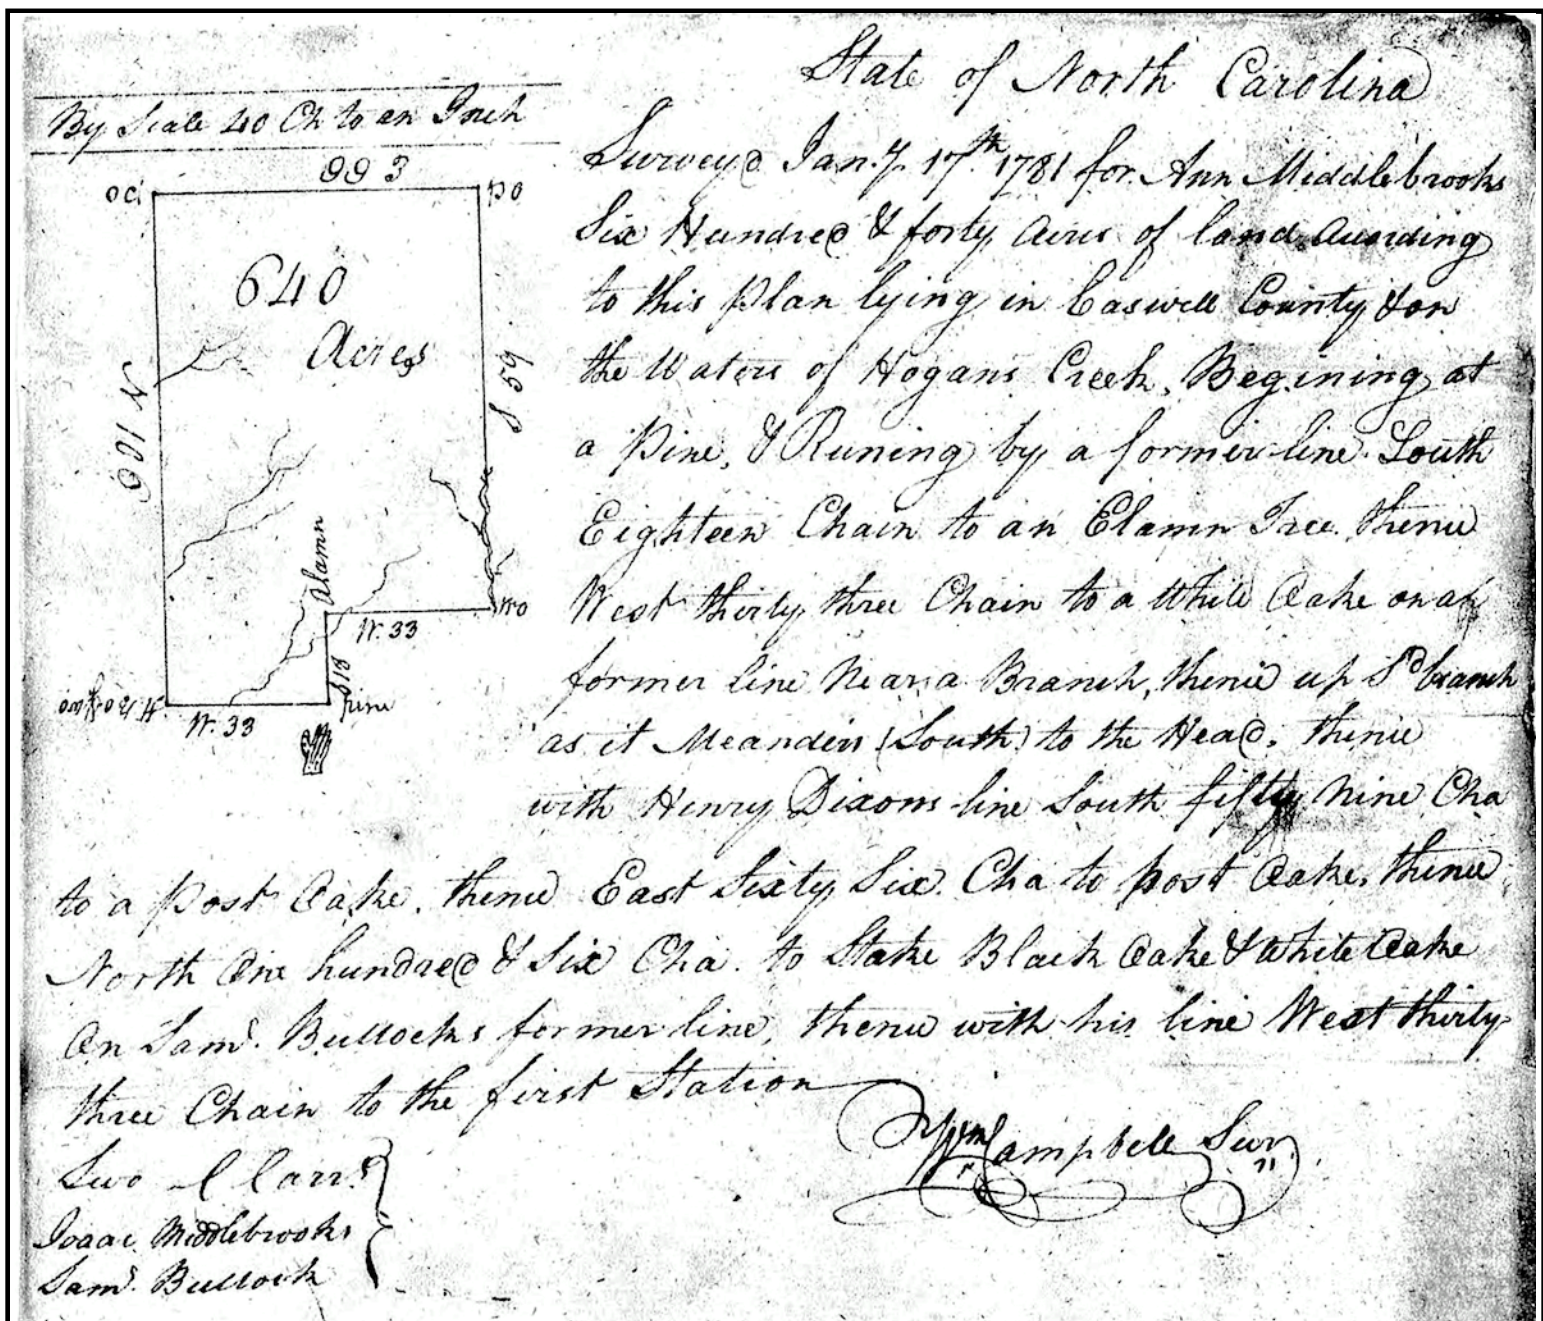 State of North Carolina
By Scale 40 Ch to an Inch
Survey'd Jany. 17th 1781 for Ann Middlebrooks
Six Hundred & forty Acres of land According
to this Plan lying in Caswell County & on
the Waters of Hogans Creek, Begining at
a Pine, & Runing by a former line South
Eighteen Chain to an Elamn Tree thence
West thirty three Chain to a White Oake on a
former line Near a Branch, thence up Sd branch
as it Meanders (South) to the Head, thence
with Henry Dixons line South fifty Nine Cha
to a Post Oake, thence East Sixty Six Cha to post Oake, thence
North One hundred & Six Cha. to Stake Black Oake & White Oake
On Saml. Bullocks former line, thence with his line West thirty
three Chain to the first Station
Wm Campbell Sur
Swo C Carrs
Isaac Middlebrooks
Saml. Bullock
E 66
po
po
640
Acres
N 106
S 59
Alamn
wo
W. 33
S 18
W. 33
pine